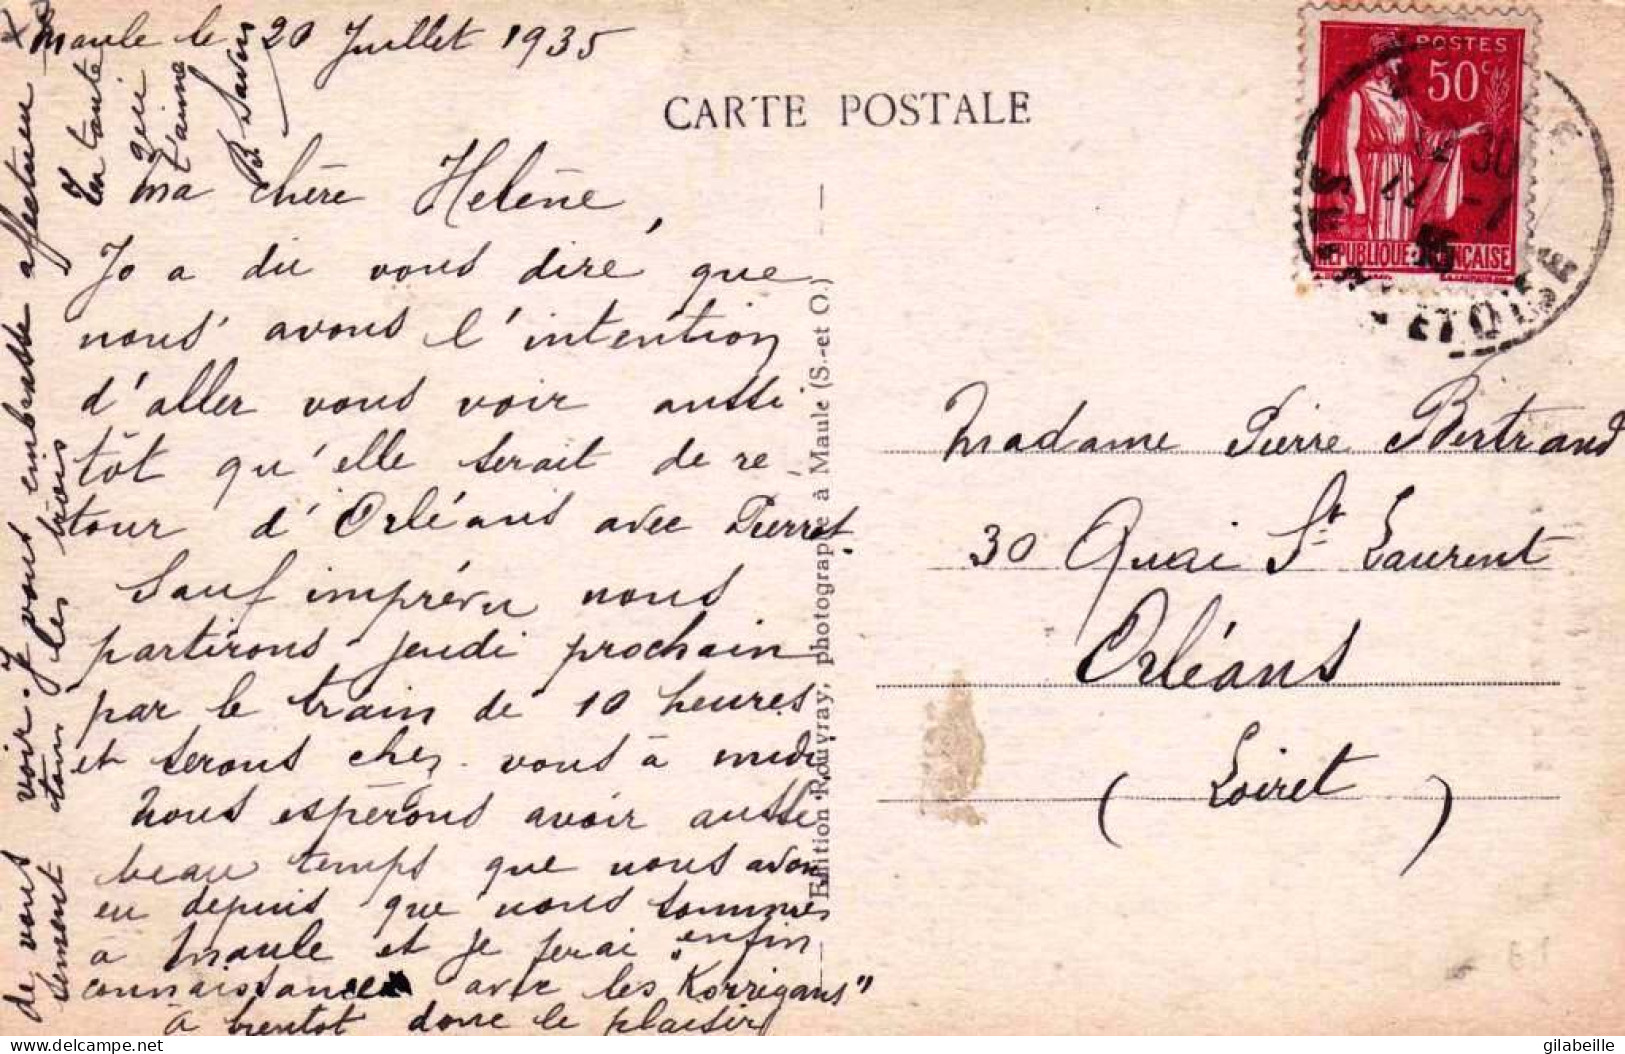 Maule le 20 Juillet 1935
Ma chère Helène,
Jo a dû vous dire que
nous avons l'intention
d'aller vous voir aussi
tôt qu'elle serait de re
tour d'Orléans avec Pierrot.
Sauf imprévu nous
partirons jeudi prochain
par le train de 10 heures
et serons chez vous à midi
Nous espérons avoir aussi
beau temps que nous avons
eu depuis que nous sommes
à Maule et je ferai enfin
connaissance avec "les Korrigans"
A bientôt donc le plaisir
de vous voir. Je vous embrasse affectueu
sement tous les trois
Ta tante
qui
t'aime
CARTE POSTALE
Edition Rouvray, photographe à Maule (S.-et O.)
POSTES
50c
REPUBLIQUE FRANÇAISE
SEINE ET OISE
Madame Pierre Bertrand
30 Quai St Laurent
Orléans
(Loiret)
gilabeille